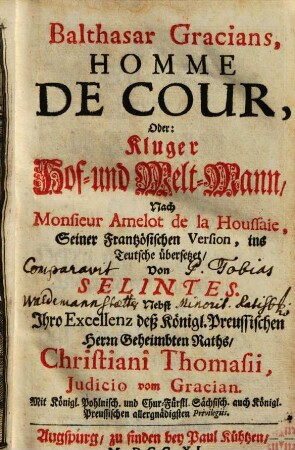 Balthasar Gracians,
HOMME
DE COUR,
Oder:
Kluger
Hof- und Welt-Mann/
Nach
Monsieur Amelot de la Houssaie,
Seiner Frantzösischen Version, ins
Teutsche übersetzet/
Comparavit Von P. Tobias
SELINTES.
Nebst Minorit. Ratisb.
Ihro Excellenz deß Königl. Preussischen
Herrn Geheimbten Raths/
Christiani Thomasii,
Judicio vom Gracian.
Mit Königl. Pohlnisch. und Chur-Fürstl. Sächsisch- auch Königl.
Preussischen allergnädigsten Privilegiis.
Augspurg/ zu finden bey Paul Kühtzen/